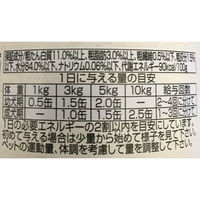 保証成分/粗たん白質11.0%以上、粗脂肪3.0%以上、粗繊維0.5%以下、粗灰分1.5%
以下、水分84.0%以下、ナトリウム0.06%以下、代謝エネルギー90kcal/100g
1日に与える量の目安
体 重 1kg 3kg 5kg 10kg 給与回数
幼犬期 0.5缶 1.5缶 2.0缶 － 2～4回に分けて
成犬期 － 1.0缶 1.5缶 2.5缶 1～2回に分けて
1日の必要エネルギーの2割以内を目安にしています。
初めて与える場合は少量から始めて様子を見て下さい。
ペットの運動量、体調を考慮して量を調節して下さい。